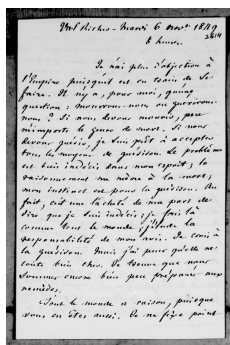 Mardi 6 nov. 1849
8 heures.
Je n'ai plus d'objection à
l'Empire puisqu'il est en train de se
faire. Il n'y a, pour moi, qu'une
question : mourrons-nous ou guérirons-
nous ? Si nous devons mourir, peu
m'importe le genre de mort. Si nous
devons guérir, je suis prêt à accepter
tous les moyens de guérison. Le problème
est bien indécis dans mon esprit ; le
raisonnement me mène à la mort,
mon instinct est pour la guérison. Au
fait, c'est une lâcheté de ma part de
dire que je suis indécis ; je fais là
comme tout le monde ; j'élude la
responsabilité de mon avis. Je crois à
la guérison. Mais j'ai peur qu'elle ne
coûte bien cher. Je trouve que nous
sommes encore bien peu préparés aux
remèdes.
Tout le monde a raison, puisque
vous en êtes aussi. Ce ne point